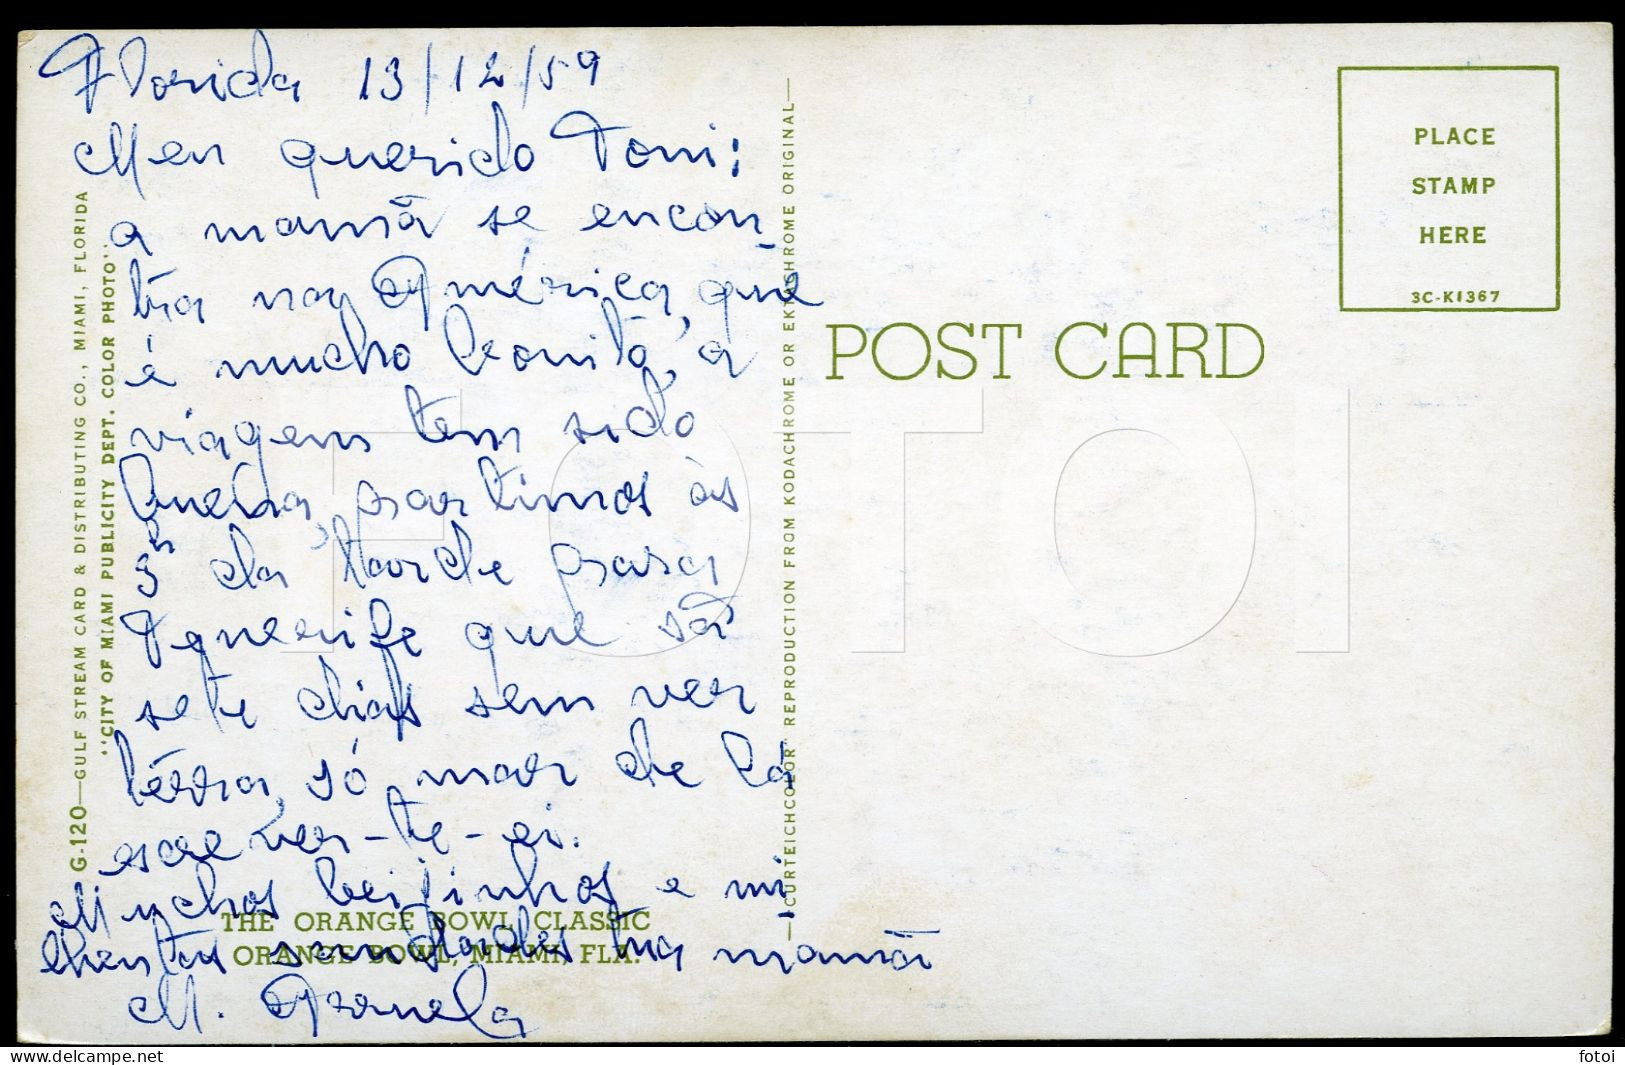 Florida 13/12/59
Meu querido Toni:
a mamã se encon-
tra na América, que
é mucho bonita, a
viagem tem sido
buena, partimos às
5h da tarde para
Tenerife que sã
sete dias sem ver
térra, só mar de lá
escrever-te-ei.
Muchos beijinhos e mi-
lhentas saudades tua mamã
M.
G-120—GULF STREAM CARD & DISTRIBUTING CO., MIAMI, FLORIDA
"CITY OF MIAMI PUBLICITY DEPT. COLOR PHOTO"
THE ORANGE BOWL CLASSIC
ORANGE BOWL, MIAMI, FLA.
"CURTEICHCOLOR" REPRODUCTION FROM KODACHROME OR EKTACHROME ORIGINAL
POST CARD
PLACE
STAMP
HERE
3C-K1367
FOTOI
www.delcampe.net
fotoi